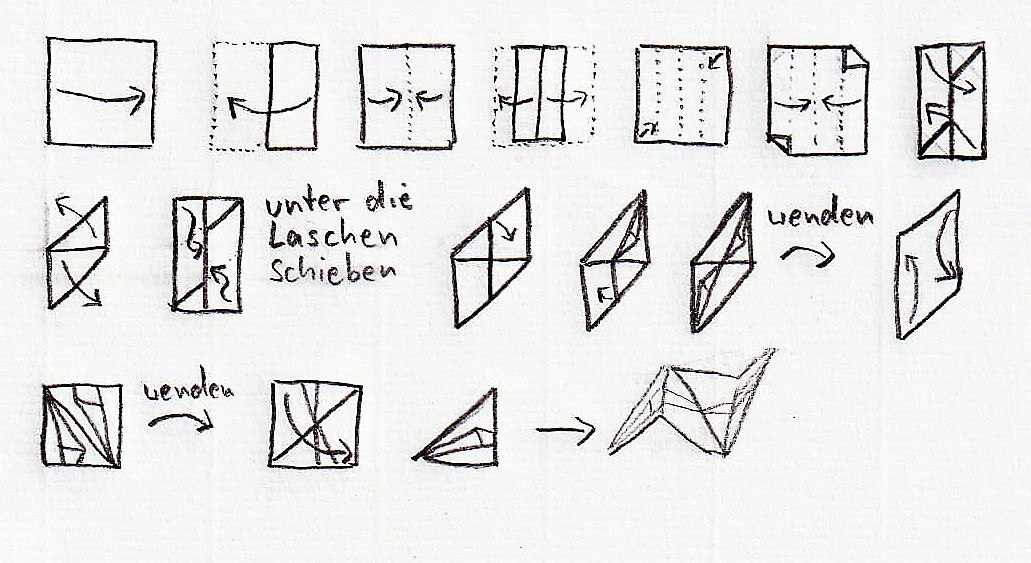 unter die
Laschen
schieben
wenden
wenden